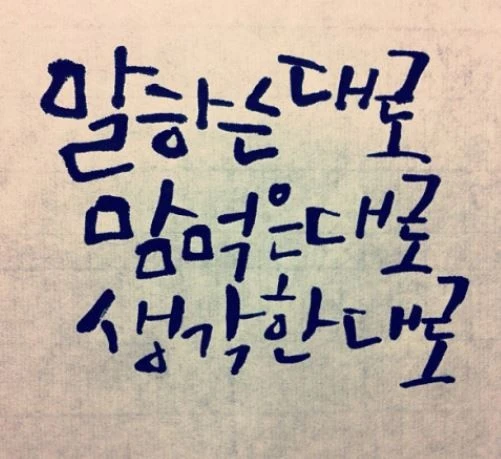 말하는대로
맘먹은대로
생각한대로